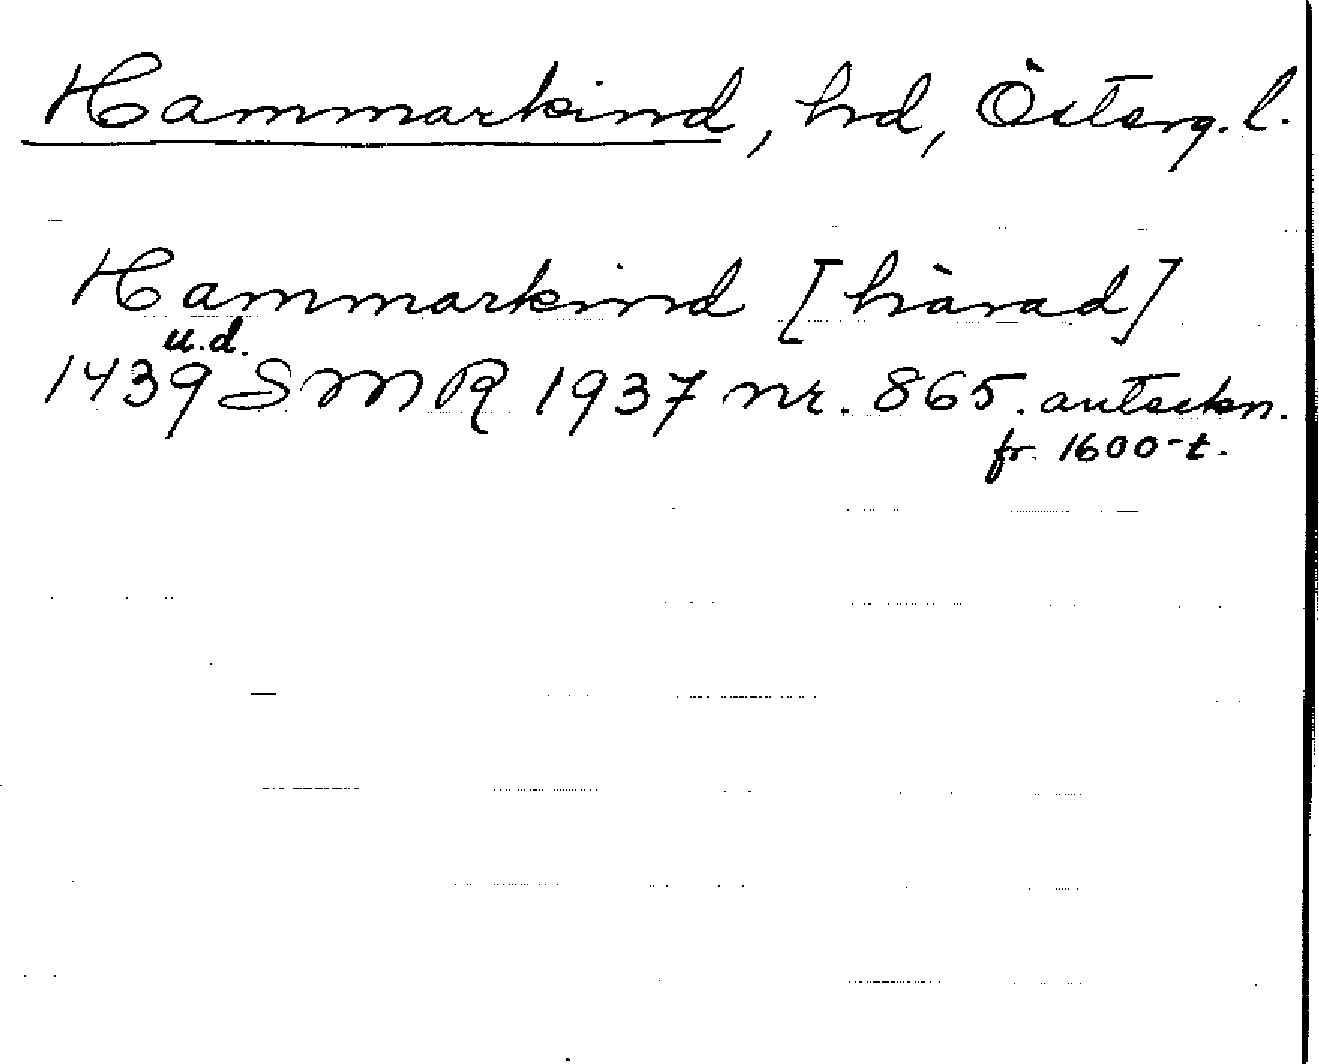 Hammarkind, hd, Österg. l.
Hammarkind [härad]
u.d.
1439 SMR 1937 nr. 865. anteckn.
fr. 1600-t.